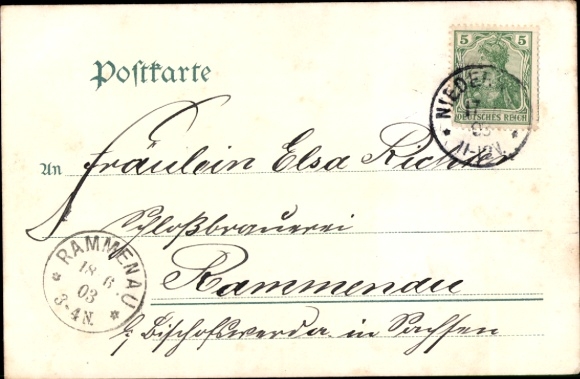 Postkarte
5 5
DEUTSCHES REICH
17
03
11-12V.
An Fräulein Elsa Richter
Schloßbrauerei
Rammenau
b/ Bischofswerda in Sachsen
RAMMENAU
18 6
03
3-4N.